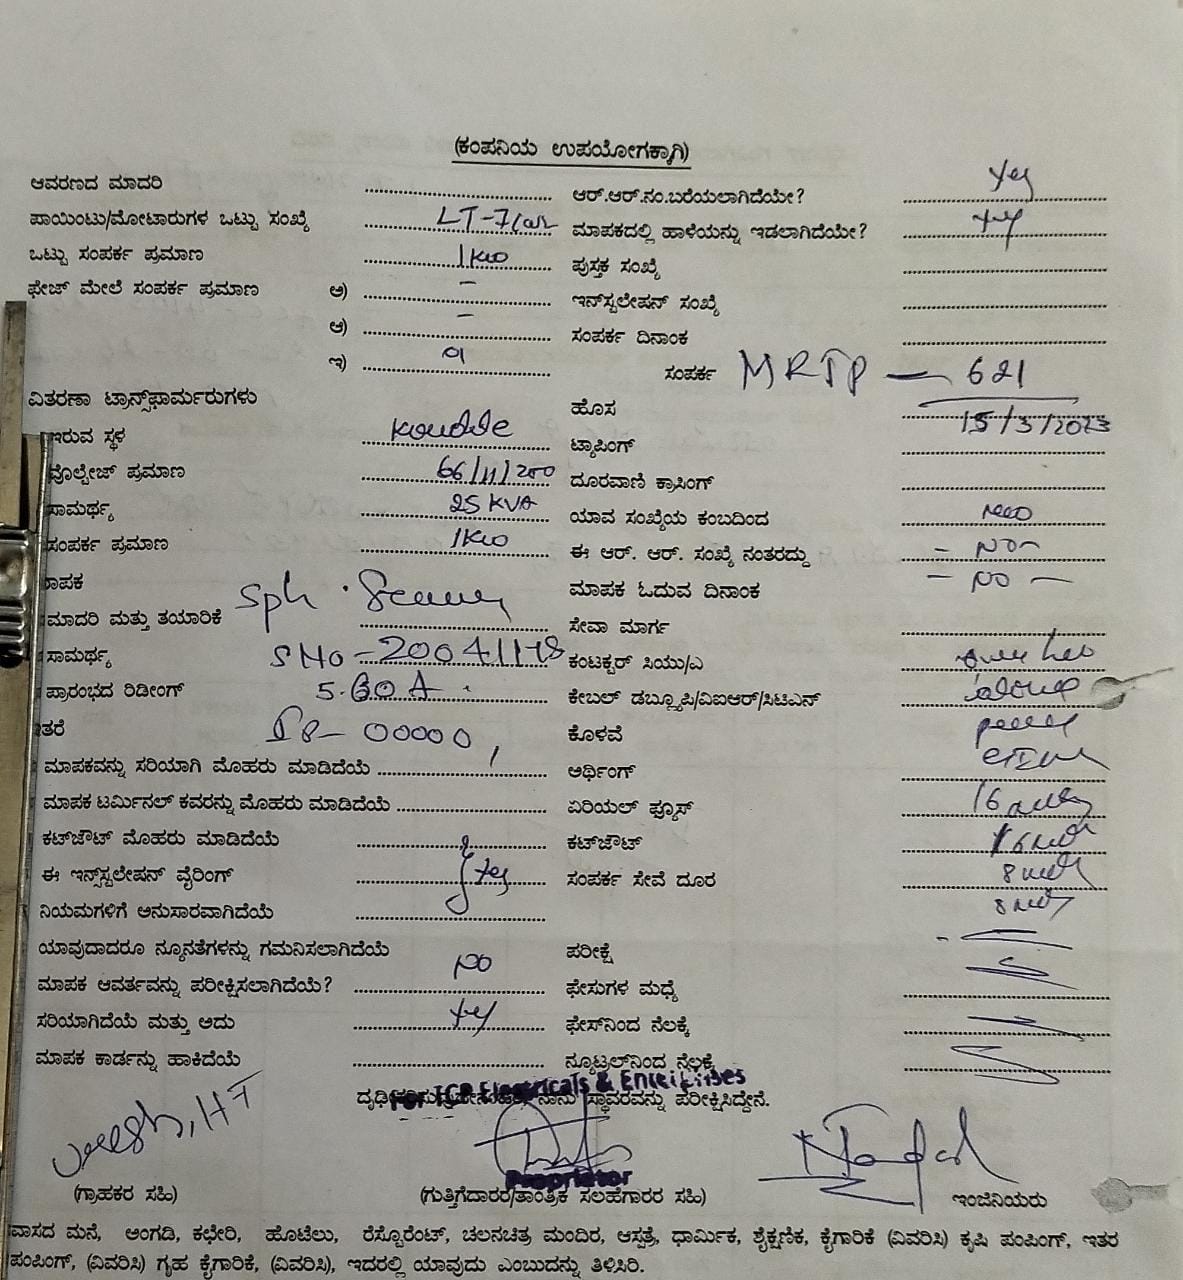 (ಕಂಪನಿಯ ಉಪಯೋಗಕ್ಕಾಗಿ)
ಆವರಣದ ಮಾದರಿ ಆರ್.ಆರ್.ನಂ.ಬರೆಯಲಾಗಿದೆಯೇ? Yes
ಪಾಯಿಂಟು/ಮೋಟಾರುಗಳ ಒಟ್ಟು ಸಂಖ್ಯೆ LT-7 ಮಾಪಕದಲ್ಲಿ ಹಾಳೆಯನ್ನು ಇಡಲಾಗಿದೆಯೇ? Yes
ಒಟ್ಟು ಸಂಪರ್ಕ ಪ್ರಮಾಣ 1KW ಪುಸ್ತಕ ಸಂಖ್ಯೆ
ಫೇಜ್ ಮೇಲೆ ಸಂಪರ್ಕ ಪ್ರಮಾಣ ಅ) – ಇನ್‌ಸ್ಟಲೇಷನ್ ಸಂಖ್ಯೆ
ಆ) – ಸಂಪರ್ಕ ದಿನಾಂಕ
ಇ) 01 ಸಂಪರ್ಕ MRTP — 621
ವಿತರಣಾ ಟ್ರಾನ್ಸ್‌ಫಾರ್ಮರುಗಳು ಹೊಸ 15/3/2023
ಇರುವ ಸ್ಥಳ ಟ್ಯಾಪಿಂಗ್
ವೊಲ್ಟೇಜ್ ಪ್ರಮಾಣ 66/11/200 ದೂರವಾಣಿ ಕ್ರಾಸಿಂಗ್
ಸಾಮರ್ಥ್ಯ 25 KVA ಯಾವ ಸಂಖ್ಯೆಯ ಕಂಬದಿಂದ
ಸಂಪರ್ಕ ಪ್ರಮಾಣ 1KW ಈ ಆರ್. ಆರ್. ಸಂಖ್ಯೆ ನಂತರದ್ದು – No –
ಾಪಕ ಮಾಪಕ ಓದುವ ದಿನಾಂಕ – No –
ಮಾದರಿ ಮತ್ತು ತಯಾರಿಕೆ Sph ಸೇವಾ ಮಾರ್ಗ
ಸಾಮರ್ಥ್ಯ SNO – 20041178 ಕಂಟಕ್ಟರ್ ಸಿಯು/ಎ
ಪ್ರಾರಂಭದ ರಿಡೀಂಗ್ 5-60 A ಕೇಬಲ್ ಡಬ್ಲ್ಯೂಪಿ/ವಿಐಆರ್/ಸಿಟಿಎನ್
ತರೆ 00000 ಕೊಳವೆ
ಮಾಪಕವನ್ನು ಸರಿಯಾಗಿ ಮೊಹರು ಮಾಡಿದೆಯೆ ಅರ್ಥಿಂಗ್
ಮಾಪಕ ಟರ್ಮಿನಲ್ ಕವರನ್ನು ಮೊಹರು ಮಾಡಿದೆಯೆ ಏರಿಯಲ್ ಫ್ಯೂಸ್ 16
ಕಟ್‌ಔಟ್ ಮೊಹರು ಮಾಡಿದೆಯೆ ಕಟ್‌ಔಟ್ 16
ಈ ಇನ್ಸ್‌ಸ್ಟಲೇಷನ್ ವೈರಿಂಗ್ Yes ಸಂಪರ್ಕ ಸೇವೆ ದೂರ 8
ನಿಯಮಗಳಿಗೆ ಅನುಸಾರವಾಗಿದೆಯೆ 8
ಯಾವುದಾದರೂ ನ್ಯೂನತೆಗಳನ್ನು ಗಮನಿಸಲಾಗಿದೆಯೆ No ಪರೀಕ್ಷೆ
ಮಾಪಕ ಆವರ್ತವನ್ನು ಪರೀಕ್ಷಿಸಲಾಗಿದೆಯೆ? ಫೇಸುಗಳ ಮಧ್ಯೆ
ಸರಿಯಾಗಿದೆಯೆ ಮತ್ತು ಅದು Yes ಫೇಸ್‌ನಿಂದ ನೆಲಕ್ಕೆ
ಮಾಪಕ ಕಾರ್ಡನ್ನು ಹಾಕಿದೆಯೆ ನ್ಯೂಟ್ರಲ್‌ನಿಂದ ನೆಲಕ್ಕೆ
Electricals & Enterprises
ನಾನು ಸ್ಥಾವರವನ್ನು ಪರೀಕ್ಷಿಸಿದ್ದೇನೆ.
Proprietor
(ಗ್ರಾಹಕರ ಸಹಿ) (ಗುತ್ತಿಗೆದಾರರ/ತಾಂತ್ರಿಕ ಸಲಹೆಗಾರರ ಸಹಿ) ಇಂಜಿನಿಯರು
ವಾಸದ ಮನೆ, ಅಂಗಡಿ, ಕಛೇರಿ, ಹೊಟೆಲು, ರೆಸ್ಟೊರೆಂಟ್, ಚಲನಚಿತ್ರ ಮಂದಿರ, ಆಸ್ಪತ್ರೆ, ಧಾರ್ಮಿಕ, ಶೈಕ್ಷಣಿಕ, ಕೈಗಾರಿಕೆ (ವಿವರಿಸಿ) ಕೃಷಿ ಪಂಪಿಂಗ್, ಇತರ
ಪಂಪಿಂಗ್, (ವಿವರಿಸಿ) ಗೃಹ ಕೈಗಾರಿಕೆ, (ವಿವರಿಸಿ), ಇದರಲ್ಲಿ ಯಾವುದು ಎಂಬುದನ್ನು ತಿಳಿಸಿರಿ.